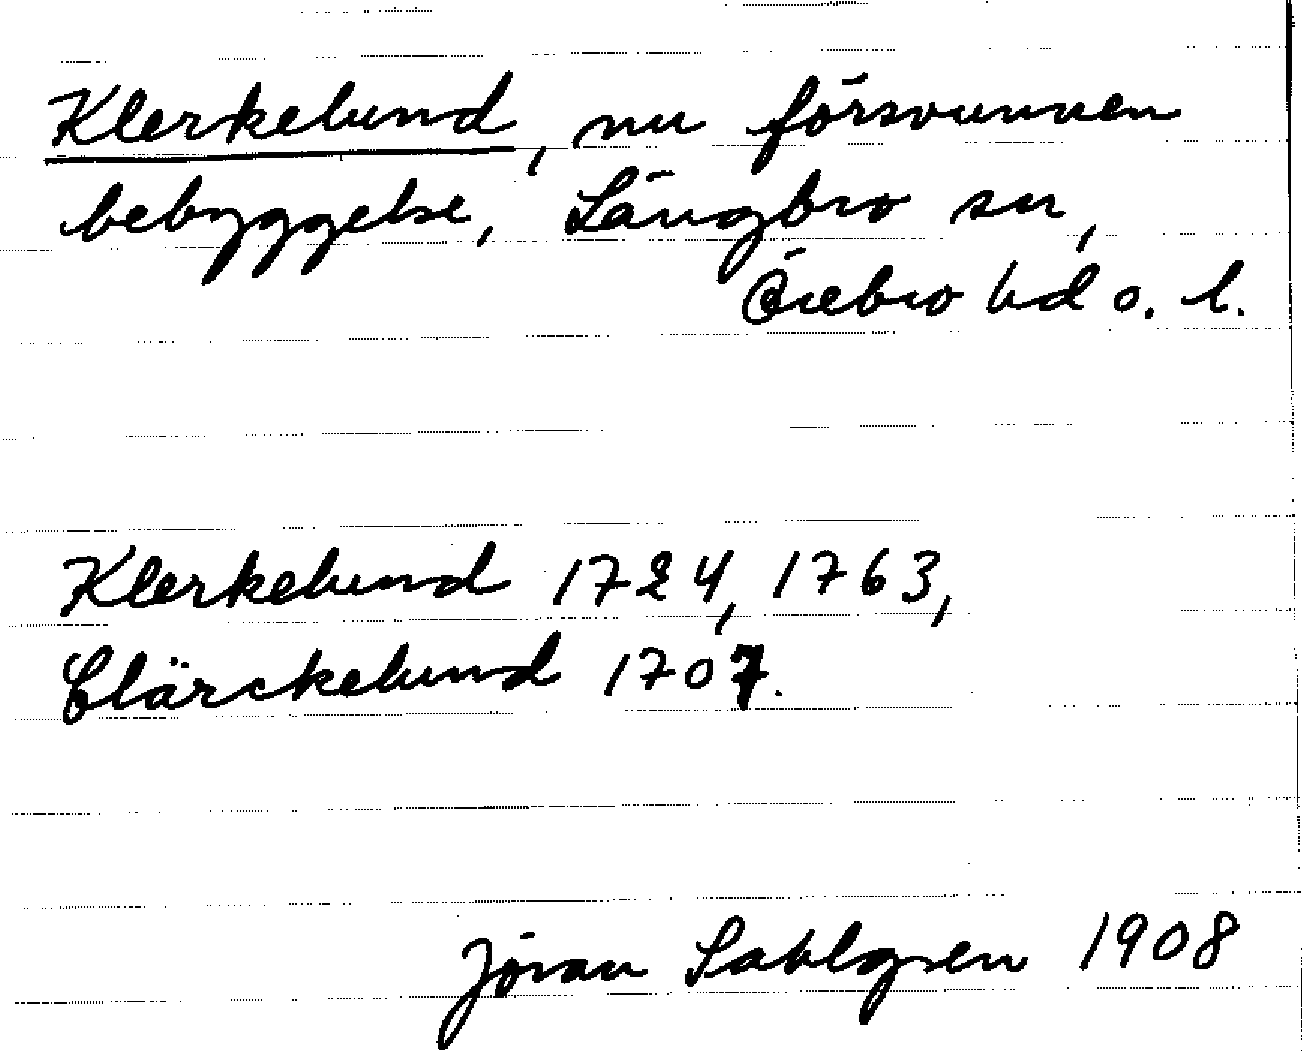 Klerkelund, nu försvunnen
bebyggelse, Längbro sn,
Örebro hd o. l.
Klerkelund 1724, 1763,
Clärckelund 1707.
Jöran Sahlgren 1908